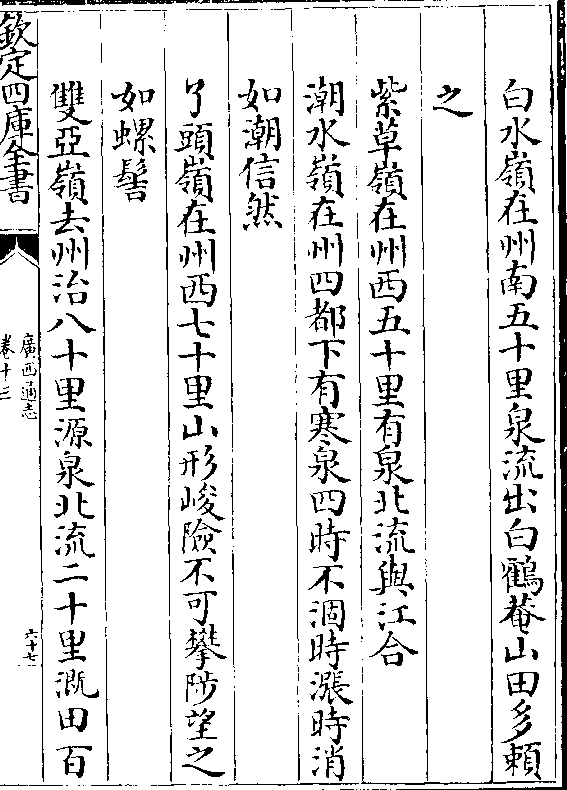 白水嶺在州南五十里泉流出白鶴菴山田多賴
之
紫草嶺在州西五十里有泉北流與江合
潮水嶺在州四都下有寒泉四時不涸時漲時消
如潮信然
了頭嶺在州西七十里山形峻險不可攀陟望之
如螺髻
雙亞嶺去州治八十里源泉北流二十里溉田百
欽定四庫全書
廣西通志
卷十三
六十七